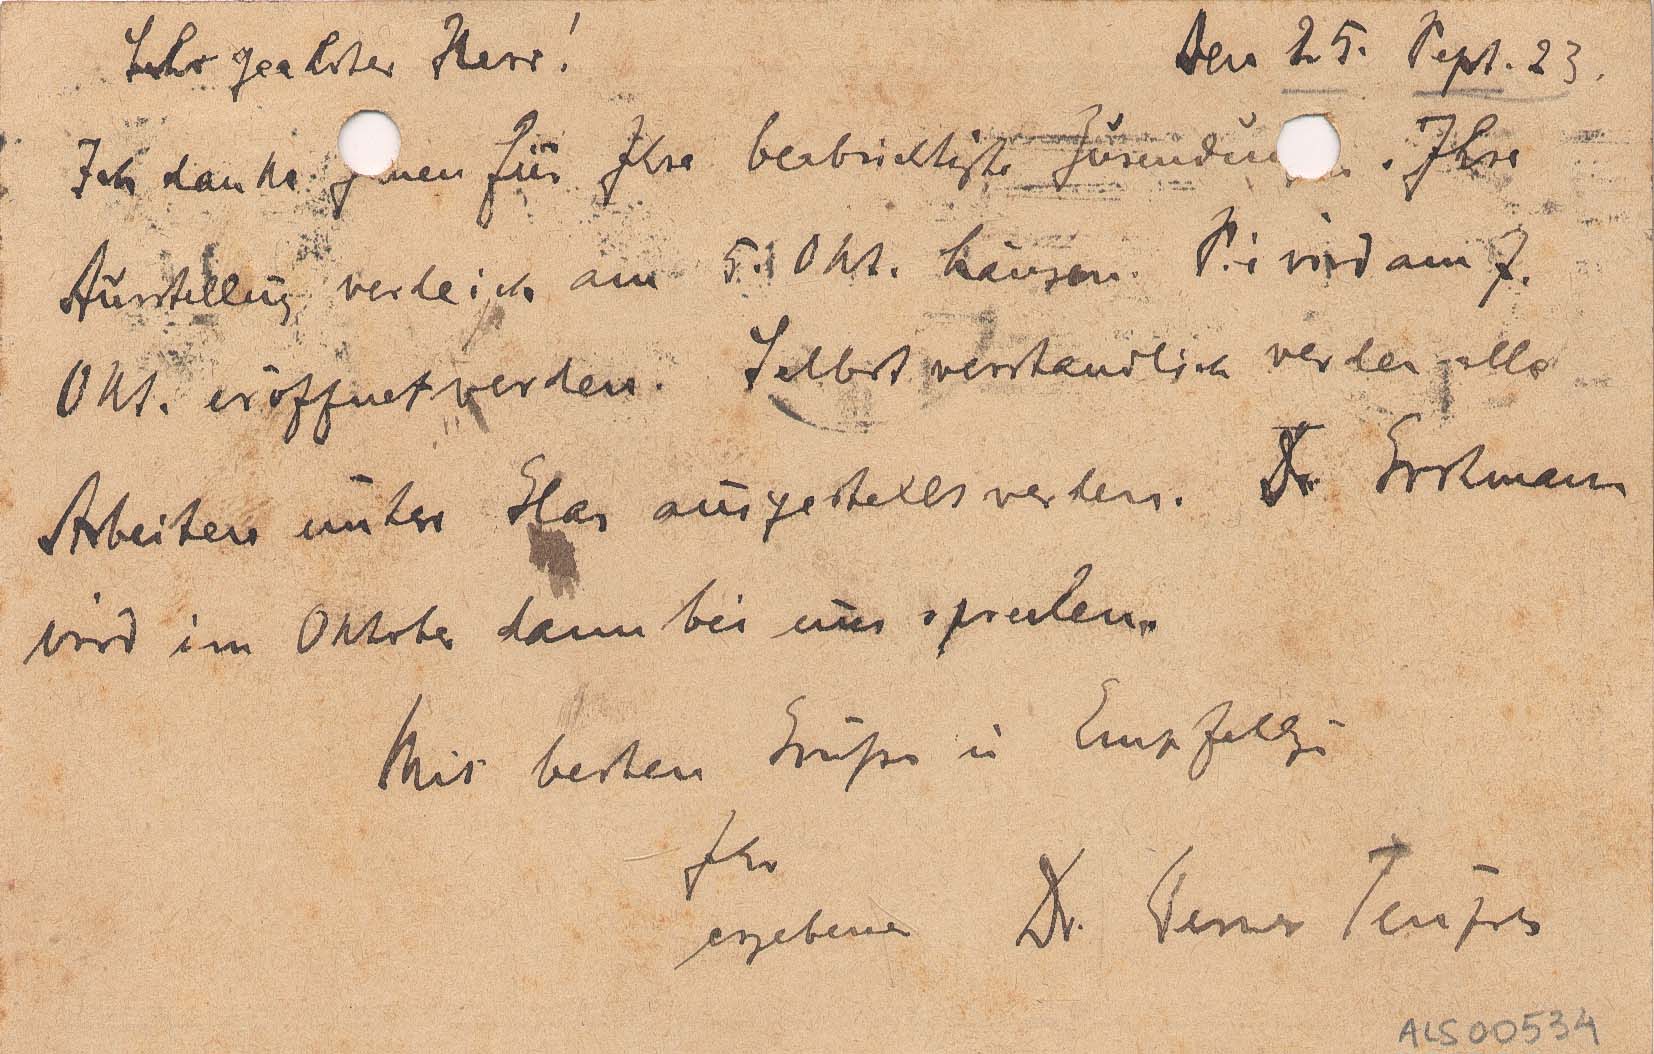 Sehr geehrter Herr! Den 25. Sept. 23.
Ich danke Ihnen für Ihre beabsichtigte Zusendung. Ihre
Ausstellung werde ich am 5. Okt. hängen. Sie wird am 7.
Okt. eröffnet werden. Selbstverständlich werden alle
Arbeiten unter Glas ausgestellt werden. Dr. Grohmann
wird im Oktober dann bei uns sprechen.
Mit besten Grüßen u Empfehlg
Ihr
ergebener Dr. Werner
ALS 00534